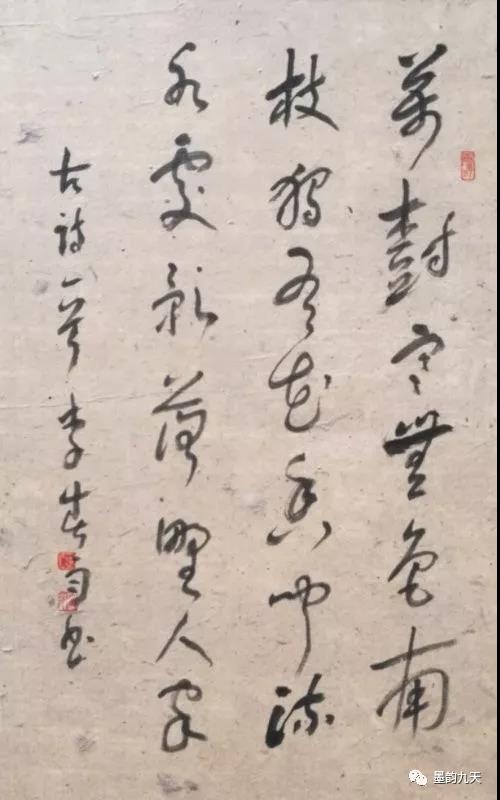 萬樹寒無色南
枝獨有花香聞流
水處影落野人家
古詩一首李書
墨韵九天